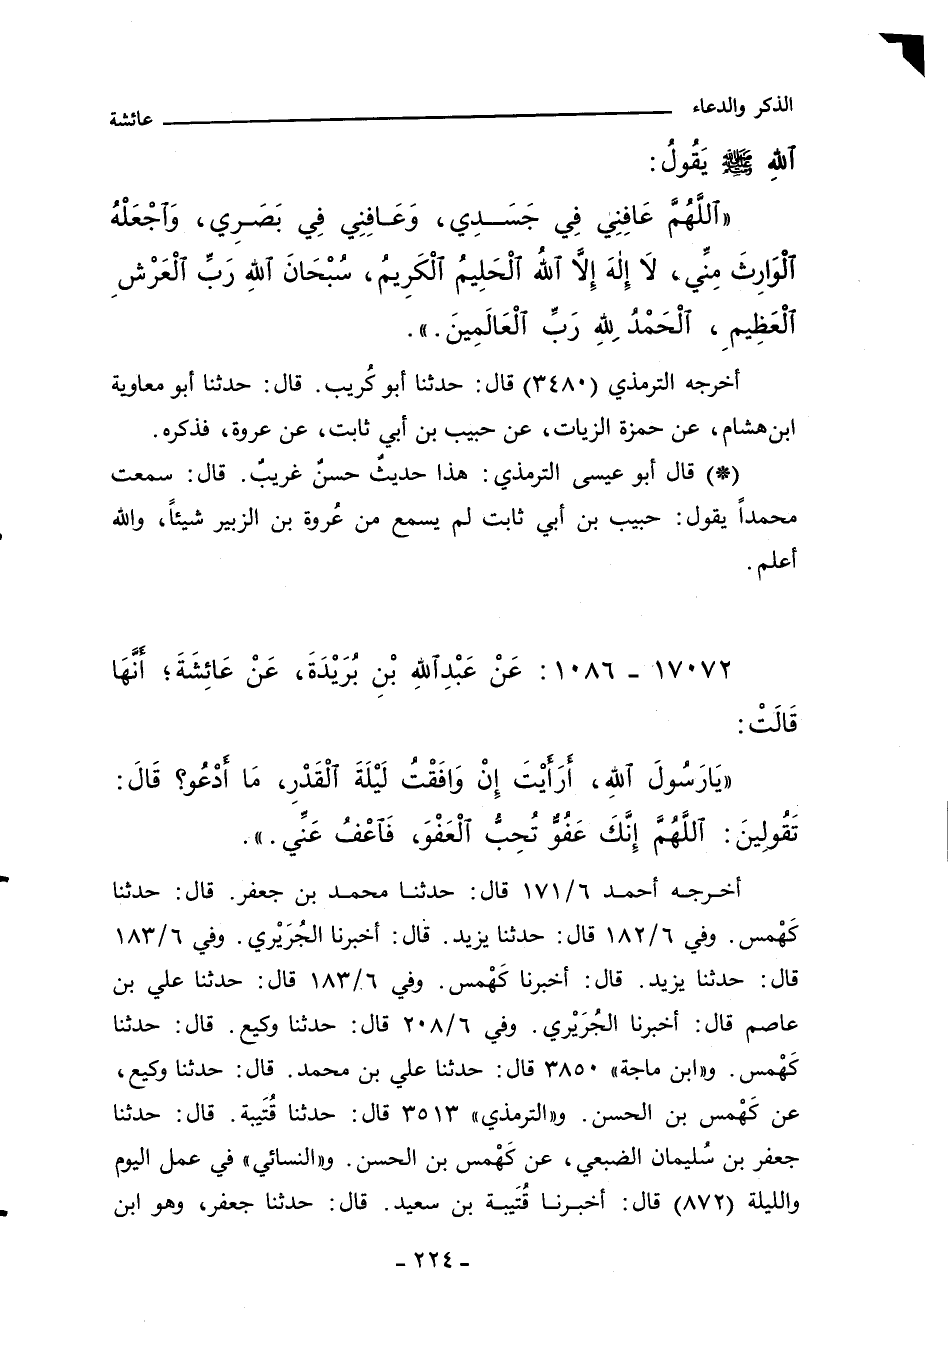 الذكر والدعاء ــــــــــــــ عائشة
ٱللهِ ﷺ يَقُولُ:
«ٱللَّهُمَّ عَافِنِي فِي جَسَـدِي، وَعَـافِنِي فِي بَصَـرِي، وَٱجْعَلْهُ
ٱلْوَارِثَ مِنِّي، لَا إِلٰهَ إِلَّا ٱللهُ ٱلْحَلِيمُ ٱلْكَرِيمُ، سُبْحَانَ ٱللهِ رَبِّ ٱلْعَرْشِ
ٱلْعَظِيمِ، ٱلْحَمْدُ لِلهِ رَبِّ ٱلْعَالَمِينَ.».
أخرجه الترمذي (٣٤٨٠) قال: حدثنا أبو كُريب. قال: حدثنا أبو معاوية
ابن هشام، عن حمزة الزيات، عن حبيب بن أبي ثابت، عن عروة، فذكره.
(*) قال أبو عيسى الترمذي: هذا حديثٌ حسنٌ غريبٌ. قال: سمعت
محمداً يقول: حبيب بن أبي ثابت لم يسمع من عُروة بن الزبير شيئاً، والله
أعلم.
١٧٠٧٢ - ١٠٨٦: عَنْ عَبْدِٱللهِ بْنِ بُرَيْدَةَ، عَنْ عَائِشَةَ؛ أَنَّهَا
قَالَتْ:
«يَارَسُولَ ٱللهِ، أَرَأَيْتَ إِنْ وَافَقْتُ لَيْلَةَ ٱلْقَدْرِ، مَا أَدْعُو؟ قَالَ:
تَقُولِينَ: ٱللَّهُمَّ إِنَّكَ عَفُوٌّ تُحِبُّ ٱلْعَفْوَ، فَٱعْفُ عَنِّي.».
أخـرجـه أحمـد ٦/١٧١ قال: حدثنـا محمـد بن جعفر. قال: حدثنا
كَهْمس. وفي ٦/١٨٢ قال: حدثنا يزيد. قال: أخبرنا الجُرَيْري. وفي ٦/١٨٣
قال: حدثنا يزيد. قال: أخبرنا كَهْمس. وفي ٦/١٨٣ قال: حدثنا علي بن
عاصم قال: أخبرنا الجُرَيْري. وفي ٦/٢٠٨ قال: حدثنا وكيع. قال: حدثنا
كَهْمس. و«ابن ماجة» ٣٨٥٠ قال: حدثنا علي بن محمد. قال: حدثنا وكيع،
عن كَهْمس بن الحسن. و«الترمذي» ٣٥١٣ قال: حدثنا قُتَيبة. قال: حدثنا
جعفر بن سُليمان الضبعي، عن كَهْمس بن الحسن. و«النسائي» في عمل اليوم
والليلة (٨٧٢) قال: أخبـرنـا قُتَيبـة بن سعيد. قال: حدثنا جعفر، وهو ابن
- ٢٢٤ -